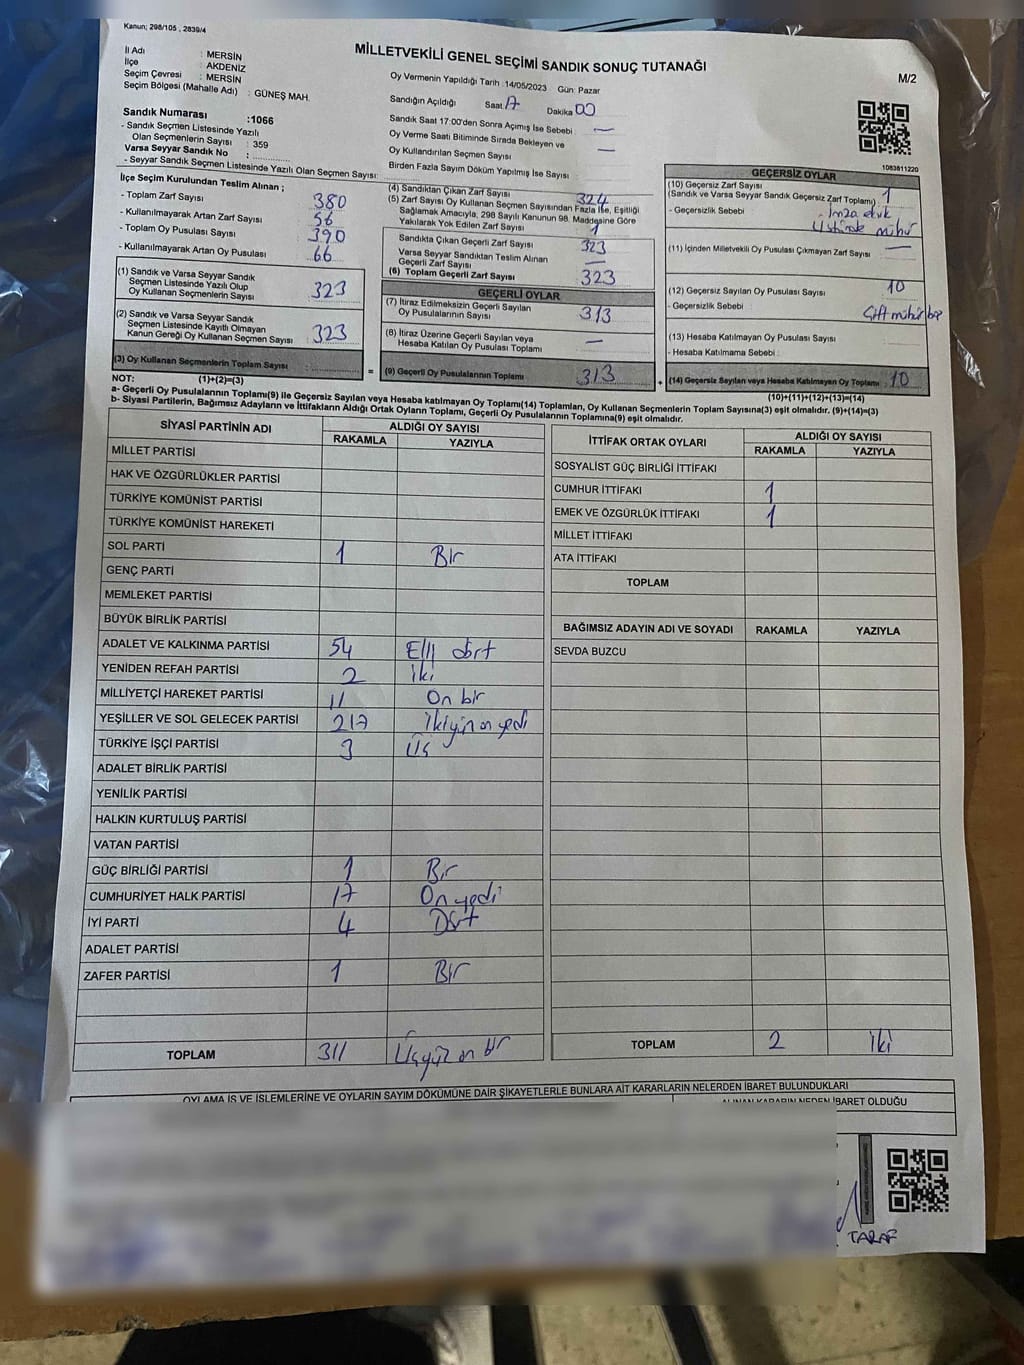 Kanun; 298/105 , 2839/4
MİLLETVEKİLİ GENEL SEÇİMİ SANDIK SONUÇ TUTANAĞI
M/2
İl Adı : MERSİN
İlçe : AKDENİZ
Seçim Çevresi : MERSİN
Seçim Bölgesi (Mahalle Adı) : GÜNEŞ MAH.
Sandık Numarası :1066
- Sandık Seçmen Listesinde Yazılı
Olan Seçmenlerin Sayısı : 359
Varsa Seyyar Sandık No :
- Seyyar Sandık Seçmen Listesinde Yazılı Olan Seçmen Sayısı:
Oy Vermenin Yapıldığı Tarih :14/05/2023 Gün: Pazar
Sandığın Açıldığı Saat 17 Dakika 00
Sandık Saat 17:00'den Sonra Açımış İse Sebebi : —
Oy Verme Saati Bitiminde Sırada Bekleyen ve
Oy Kullandırılan Seçmen Sayısı —
Birden Fazla Sayım Döküm Yapılmış İse Sayısı :
1083811220
İlçe Seçim Kurulundan Teslim Alınan ;
- Toplam Zarf Sayısı 380
- Kullanılmayarak Artan Zarf Sayısı 56
- Toplam Oy Pusulası Sayısı 390
- Kullanılmayarak Artan Oy Pusulası 66
(1) Sandık ve Varsa Seyyar Sandık
Seçmen Listesinde Yazılı Olup
Oy Kullanan Seçmenlerin Sayısı 323
(2) Sandık ve Varsa Seyyar Sandık
Seçmen Listesinde Kayıtlı Olmayan
Kanun Gereği Oy Kullanan Seçmen Sayısı 323
(3) Oy Kullanan Seçmenlerin Toplam Sayısı :
(4) Sandıktan Çıkan Zarf Sayısı 324
(5) Zarf Sayısı Oy Kullanan Seçmen Sayısından Fazla İse, Eşitliği
Sağlamak Amacıyla, 298 Sayılı Kanunun 98. Maddesine Göre
Yakılarak Yok Edilen Zarf Sayısı 1
Sandıkta Çıkan Geçerli Zarf Sayısı 323
Varsa Seyyar Sandıktan Teslim Alınan
Geçerli Zarf Sayısı —
(6) Toplam Geçerli Zarf Sayısı 323
GEÇERLİ OYLAR
(7) İtiraz Edilmeksizin Geçerli Sayılan
Oy Pusulalarının Sayısı 313
(8) İtiraz Üzerine Geçerli Sayılan veya
Hesaba Katılan Oy Pusulası Toplamı —
= (9) Geçerli Oy Pusulalarının Toplamı 313
GEÇERSİZ OYLAR
(10) Geçersiz Zarf Sayısı
(Sandık ve Varsa Seyyar Sandık Geçersiz Zarf Toplamı) 1
- Geçersizlik Sebebi : İmza eksik
mühür
(11) İçinden Milletvekili Oy Pusulası Çıkmayan Zarf Sayısı —
(12) Geçersiz Sayılan Oy Pusulası Sayısı 10
- Geçersizlik Sebebi : Çift mühür
(13) Hesaba Katılmayan Oy Pusulası Sayısı
- Hesaba Katılmama Sebebi :
+ (14) Geçersiz Sayılan veya Hesaba Katılmayan Oy Toplamı : 10
NOT: (1)+(2)=(3) (10)+(11)+(12)+(13)=(14)
a- Geçerli Oy Pusulalarının Toplamı(9) ile Geçersiz Sayılan veya Hesaba katılmayan Oy Toplamı(14) Toplamları, Oy Kullanan Seçmenlerin Toplam Sayısına(3) eşit olmalıdır. (9)+(14)=(3)
b- Siyasi Partilerin, Bağımsız Adayların ve İttifakların Aldığı Ortak Oyların Toplamı, Geçerli Oy Pusulalarının Toplamına(9) eşit olmalıdır.
SİYASİ PARTİNİN ADI ALDIĞI OY SAYISI
RAKAMLA YAZIYLA
MİLLET PARTİSİ
HAK VE ÖZGÜRLÜKLER PARTİSİ
TÜRKİYE KOMÜNİST PARTİSİ
TÜRKİYE KOMÜNİST HAREKETİ
SOL PARTİ 1 Bir
GENÇ PARTİ
MEMLEKET PARTİSİ
BÜYÜK BİRLİK PARTİSİ
ADALET VE KALKINMA PARTİSİ 54 Elli dört
YENİDEN REFAH PARTİSİ 2 iki
MİLLİYETÇİ HAREKET PARTİSİ 11 On bir
YEŞİLLER VE SOL GELECEK PARTİSİ 217 İkiyüz on yedi
TÜRKİYE İŞÇİ PARTİSİ 3 Üç
ADALET BİRLİK PARTİSİ
YENİLİK PARTİSİ
HALKIN KURTULUŞ PARTİSİ
VATAN PARTİSİ
GÜÇ BİRLİĞİ PARTİSİ 1 Bir
CUMHURİYET HALK PARTİSİ 17 On yedi
İYİ PARTİ 4 Dört
ADALET PARTİSİ
ZAFER PARTİSİ 1 Bir
TOPLAM 311 Üçyüz on bir
İTTİFAK ORTAK OYLARI ALDIĞI OY SAYISI
RAKAMLA YAZIYLA
SOSYALİST GÜÇ BİRLİĞİ İTTİFAKI
CUMHUR İTTİFAKI 1
EMEK VE ÖZGÜRLÜK İTTİFAKI 1
MİLLET İTTİFAKI
ATA İTTİFAKI
TOPLAM
BAĞIMSIZ ADAYIN ADI VE SOYADI RAKAMLA YAZIYLA
SEVDA BUZCU
TOPLAM 2 iki
OYLAMA İŞ VE İŞLEMLERİNE VE OYLARIN SAYIM DÖKÜMÜNE DAİR ŞİKAYETLERLE BUNLARA AİT KARARLARIN NELERDEN İBARET BULUNDUKLARI
ALINAN KARARIN NEDEN İBARET OLDUĞU
TARAF